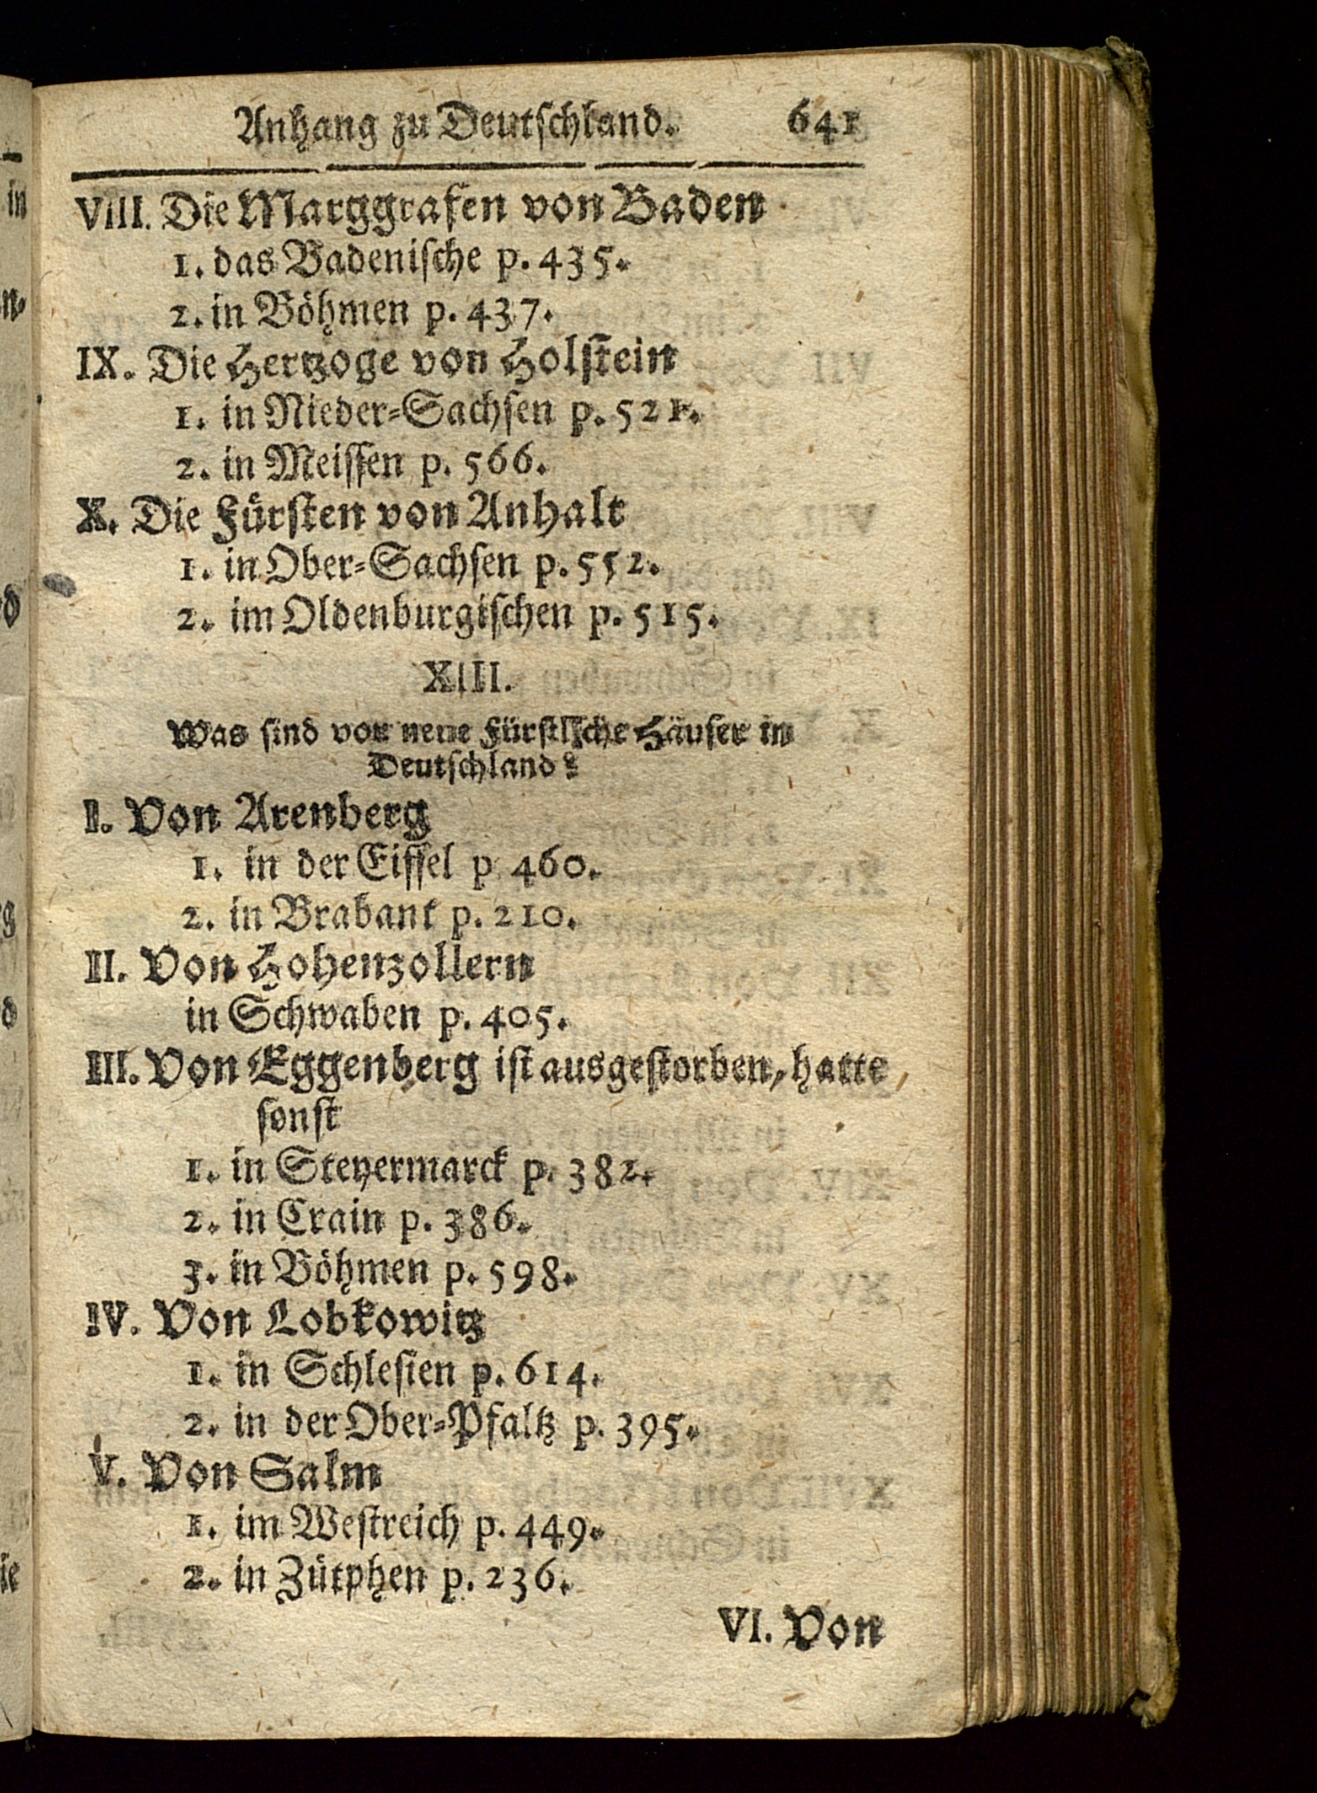 Anhang zu Deutschland. 641
VIII. Die Marggrafen von Baden
1. das Badenische p. 435.
2. in Böhmen p. 437.
IX. Die Hertzoge von Holstein
1. in Nieder-Sachsen p. 521.
2. in Meissen p. 566.
X. Die Fürsten von Anhalt
1. in Ober-Sachsen p. 552.
2. im Oldenburgischen p. 515.
XIII.
Was sind vor neue Fürstliche Häuser in
Deutschland?
I. Von Arenberg
1. in der Eiffel p 460.
2. in Brabant p. 210.
II. Von Hohenzollern
in Schwaben p. 405.
III. Von Eggenberg ist ausgestorben, hatte
sonst
1. in Steyermarck p. 382.
2. in Crain p. 386.
3. in Böhmen p. 598.
IV. Von Lobkowitz
1. in Schlesien p. 614.
2. in der Ober-Pfaltz p. 395.
V. Von Salm
1. im Westreich p. 449.
2. in Zütphen p. 236.
VI. Von